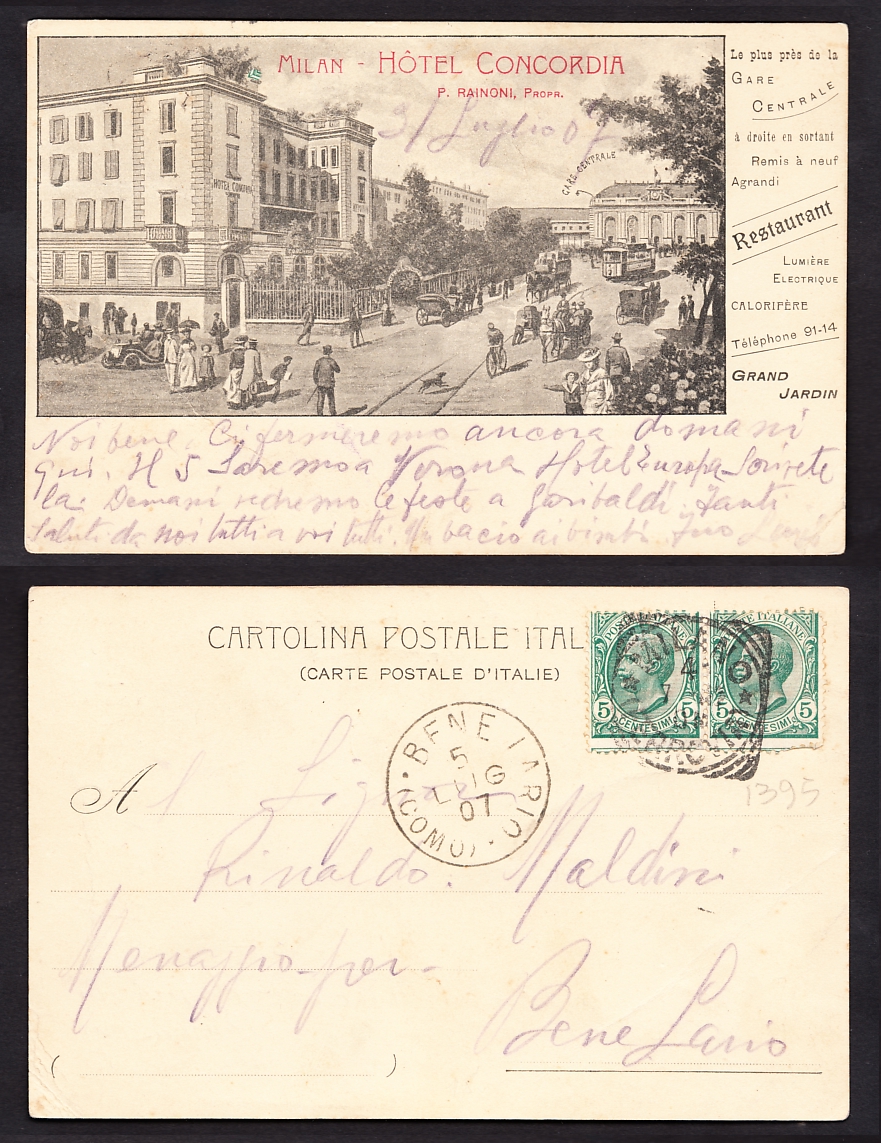 MILAN - HÔTEL CONCORDIA
P. RAINONI, PROPR.
3/ Luglio 07
GARE CENTRALE
HOTEL CONCORDIA
Le plus près de la
GARE
CENTRALE
à droite en sortant
Remis à neuf
Agrandi
Restaurant
LUMIÈRE
ELECTRIQUE
CALORIFÈRE
Téléphone 91-14
GRAND
JARDIN
Noi bene. Ci fermeremo ancora domani
qui. Il 5 Saremo a Verona Hotel Europa Scrivete
la. Domani vedremo le feste a Garibaldi. Tanti
Saluti da noi tutti a voi tutti. Un bacio ai bimbi
CARTOLINA POSTALE ITAL
(CARTE POSTALE D'ITALIE)
POSTE ITALIANE
5 CENTESIMI 5
POSTE ITALIANE
5 CENTESIMI 5
MILANO
4
7
BENE LARIO
5
LUG
07
(COMO)
1395
Al Signor
Rinaldo Maldini
Menaggio per
Bene Lario
( )